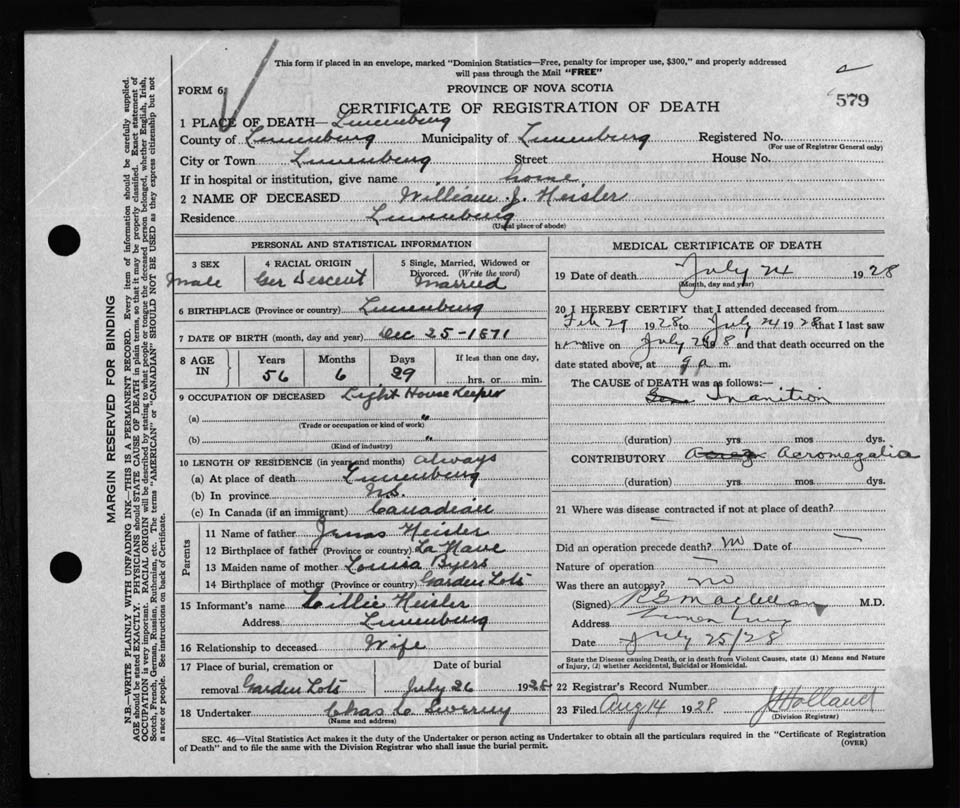 This form if placed in an envelope, marked "Dominion Statistics—Free, penalty for improper use, $300," and properly addressed
will pass through the Mail "FREE"
FORM 6
PROVINCE OF NOVA SCOTIA
579
CERTIFICATE OF REGISTRATION OF DEATH
1 PLACE OF DEATH— Lunenburg
County of Lunenburg Municipality of Lunenburg Registered No.
(For use of Registrar General only)
City or Town Lunenburg Street House No.
If in hospital or institution, give name home
2 NAME OF DECEASED William J. Heisler
Residence Lunenburg
(Usual place of abode)
PERSONAL AND STATISTICAL INFORMATION
3 SEX 4 RACIAL ORIGIN 5 Single, Married, Widowed or
Divorced. (Write the word)
Male Ger Descent Married
6 BIRTHPLACE (Province or country) Lunenburg
7 DATE OF BIRTH (month, day and year) Dec 25-1871
8 AGE IN Years Months Days If less than one day,
56 6 29 hrs. or min.
9 OCCUPATION OF DECEASED Light House Keeper
(a) "
(Trade or occupation or kind of work)
(b) "
(Kind of industry)
10 LENGTH OF RESIDENCE (in years and months) always
(a) At place of death Lunenburg
(b) In province N.S.
(c) In Canada (if an immigrant) Canadian
Parents
11 Name of father James Heisler
12 Birthplace of father (Province or country) La Have
13 Maiden name of mother Louisa Byers
14 Birthplace of mother (Province or country) Garden Lots
15 Informant's name Lillie Heisler
Address Lunenburg
16 Relationship to deceased Wife
17 Place of burial, cremation or Date of burial
removal Garden Lots July 26 1928
18 Undertaker Chas L Sweeny
(Name and address)
MEDICAL CERTIFICATE OF DEATH
19 Date of death July 24 1928
(Month, day and year)
20 I HEREBY CERTIFY that I attended deceased from
Feb 29 1928 to July 24 1928 that I last saw
him alive on July 1928 and that death occurred on the
date stated above, at 9 a m.
The CAUSE of DEATH was as follows:—
Inanition
(duration) yrs mos dys.
CONTRIBUTORY Acromegalia
(duration) yrs mos dys.
21 Where was disease contracted if not at place of death?
Did an operation precede death? no Date of —
Nature of operation —
Was there an autopsy? no
(Signed) M.D.
Address Lunenburg
Date July 25/28
State the Disease causing Death, or in death from Violent Causes, state (1) Means and Nature
of Injury, (2) whether Accidental, Suicidal or Homicidal.
22 Registrar's Record Number
23 Filed Aug 14 1928 J Holland
(Division Registrar)
SEC. 46—Vital Statistics Act makes it the duty of the Undertaker or person acting as Undertaker to obtain all the particulars required in the "Certificate of Registration
of Death" and to file the same with the Division Registrar who shall issue the burial permit. (OVER)
MARGIN RESERVED FOR BINDING
N.B.—WRITE PLAINLY WITH UNFADING INK—THIS IS A PERMANENT RECORD. Every item of information should be carefully supplied.
AGE should be stated EXACTLY. PHYSICIANS should STATE CAUSE OF DEATH in plain terms, so that it may be properly classified. Exact statement of
OCCUPATION is very important. RACIAL ORIGIN will be described by stating to what people or tongue the deceased person belonged, whether English, Irish,
Scotch, French, German, Russian, Ruthenian, etc. The terms "AMERICAN" or "CANADIAN" SHOULD NOT BE USED as they express citizenship but not
a race or people. See instructions on back of Certificate.